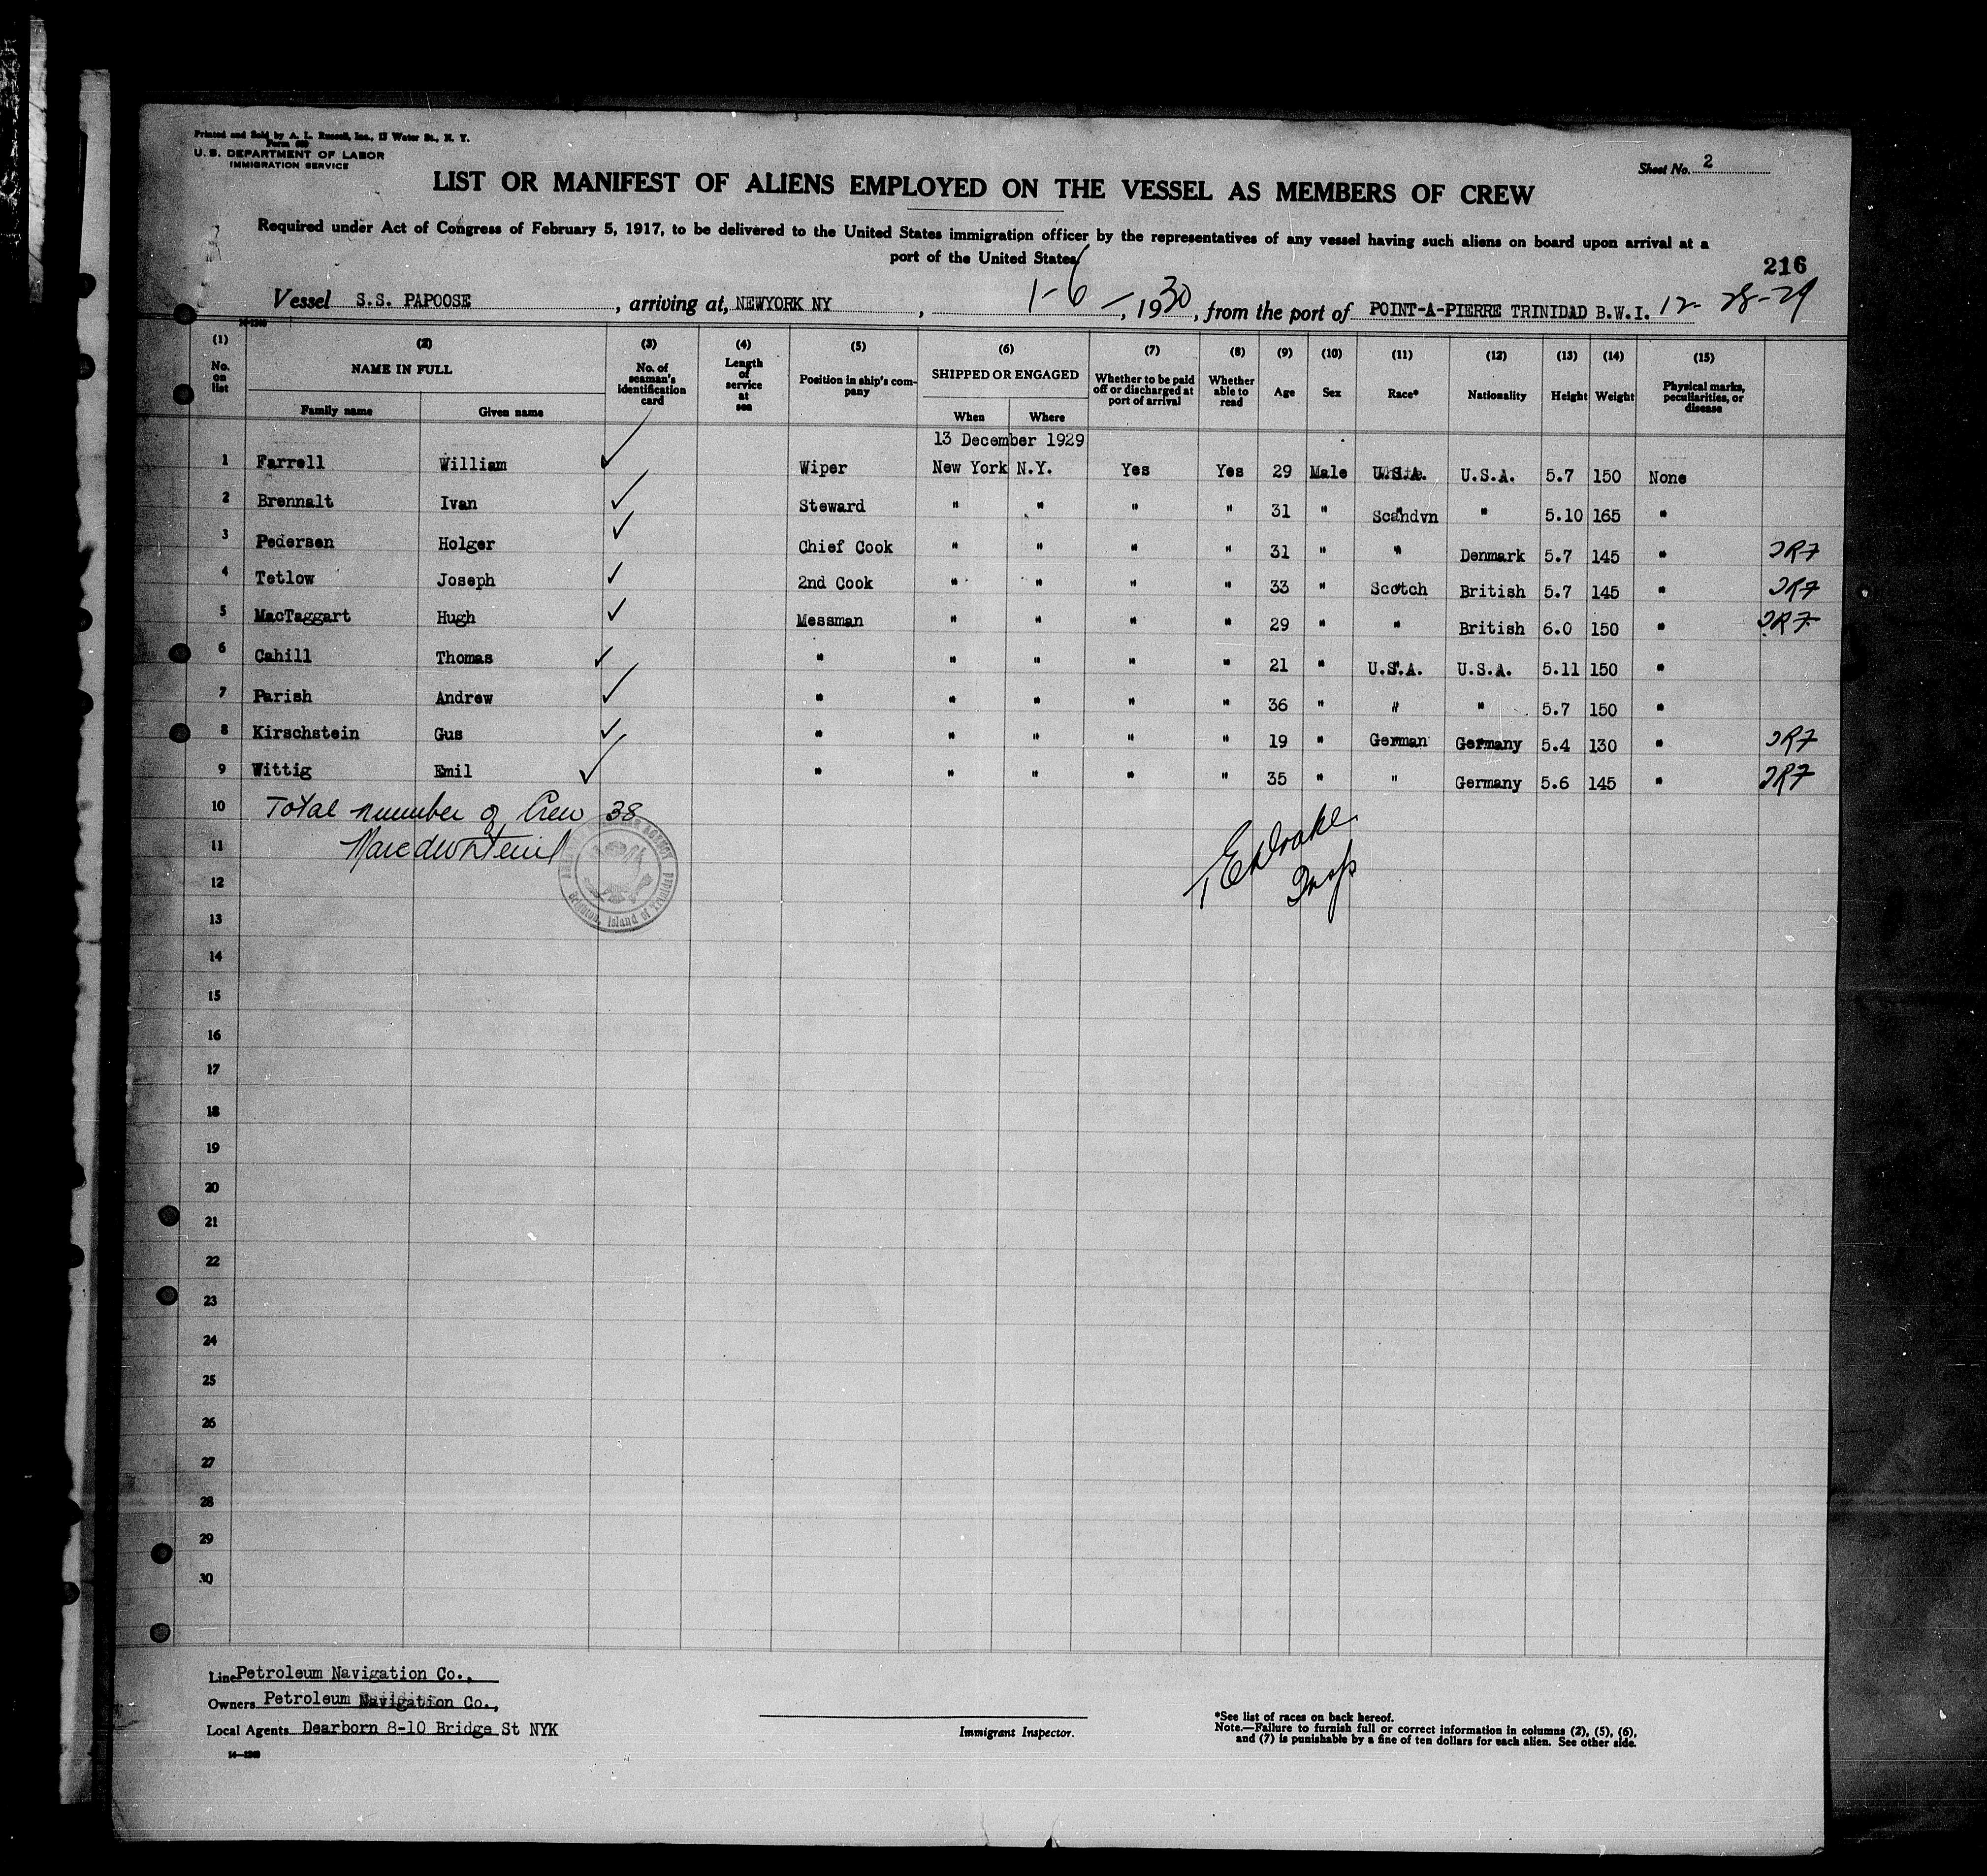 Printed and Sold by A. L. Russell, Inc., 13 Water St., N. Y.
U. S. DEPARTMENT OF LABOR
IMMIGRATION SERVICE
Sheet No. 2
LIST OR MANIFEST OF ALIENS EMPLOYED ON THE VESSEL AS MEMBERS OF CREW
Required under Act of Congress of February 5, 1917, to be delivered to the United States immigration officer by the representatives of any vessel having such aliens on board upon arrival at a
port of the United States
216
Vessel S.S. PAPOOSE, arriving at, NEWYORK NY, 1-6-, 1930, from the port of POINT-A-PIERRE TRINIDAD B.W.I. 12-28-29
(1) (2) (3) (4) (5) (6) (7) (8) (9) (10) (11) (12) (13) (14) (15)
No. on list NAME IN FULL No. of seaman's identification card Length of service at sea Position in ship's company SHIPPED OR ENGAGED Whether to be paid off or discharged at port of arrival Whether able to read Age Sex Race* Nationality Height Weight Physical marks, peculiarities, or disease
Family name Given name When Where
13 December 1929
1 Farrell William Wiper New York N.Y. Yes Yes 29 Male U.S.A. U.S.A. 5.7 150 None
2 Brennalt Ivan Steward " " " " 31 " Scandvn " 5.10 165 "
3 Pedersen Holger Chief Cook " " " " 31 " " Denmark 5.7 145 "
4 Tetlow Joseph 2nd Cook " " " " 33 " Scotch British 5.7 145 "
5 MacTaggart Hugh Messman " " " " 29 " " British 6.0 150 "
6 Cahill Thomas " " " " " 21 " U.S.A. U.S.A. 5.11 150 "
7 Parish Andrew " " " " " 36 " " " 5.7 150 "
8 Kirschstein Gus " " " " " 19 " German Germany 5.4 130 "
9 Wittig Emil " " " " " 35 " " Germany 5.6 145 "
10 Total number of Crew 38
11
12
13
14
15
16
17
18
19
20
21
22
23
24
25
26
27
28
29
30
Brighton, Island of Trinidad
Line Petroleum Navigation Co.,
Owners Petroleum Navigation Co.,
Local Agents Dearborn 8-10 Bridge St NYK
Immigrant Inspector.
*See list of races on back hereof.
Note.—Failure to furnish full or correct information in columns (2), (5), (6),
and (7) is punishable by a fine of ten dollars for each alien. See other side.